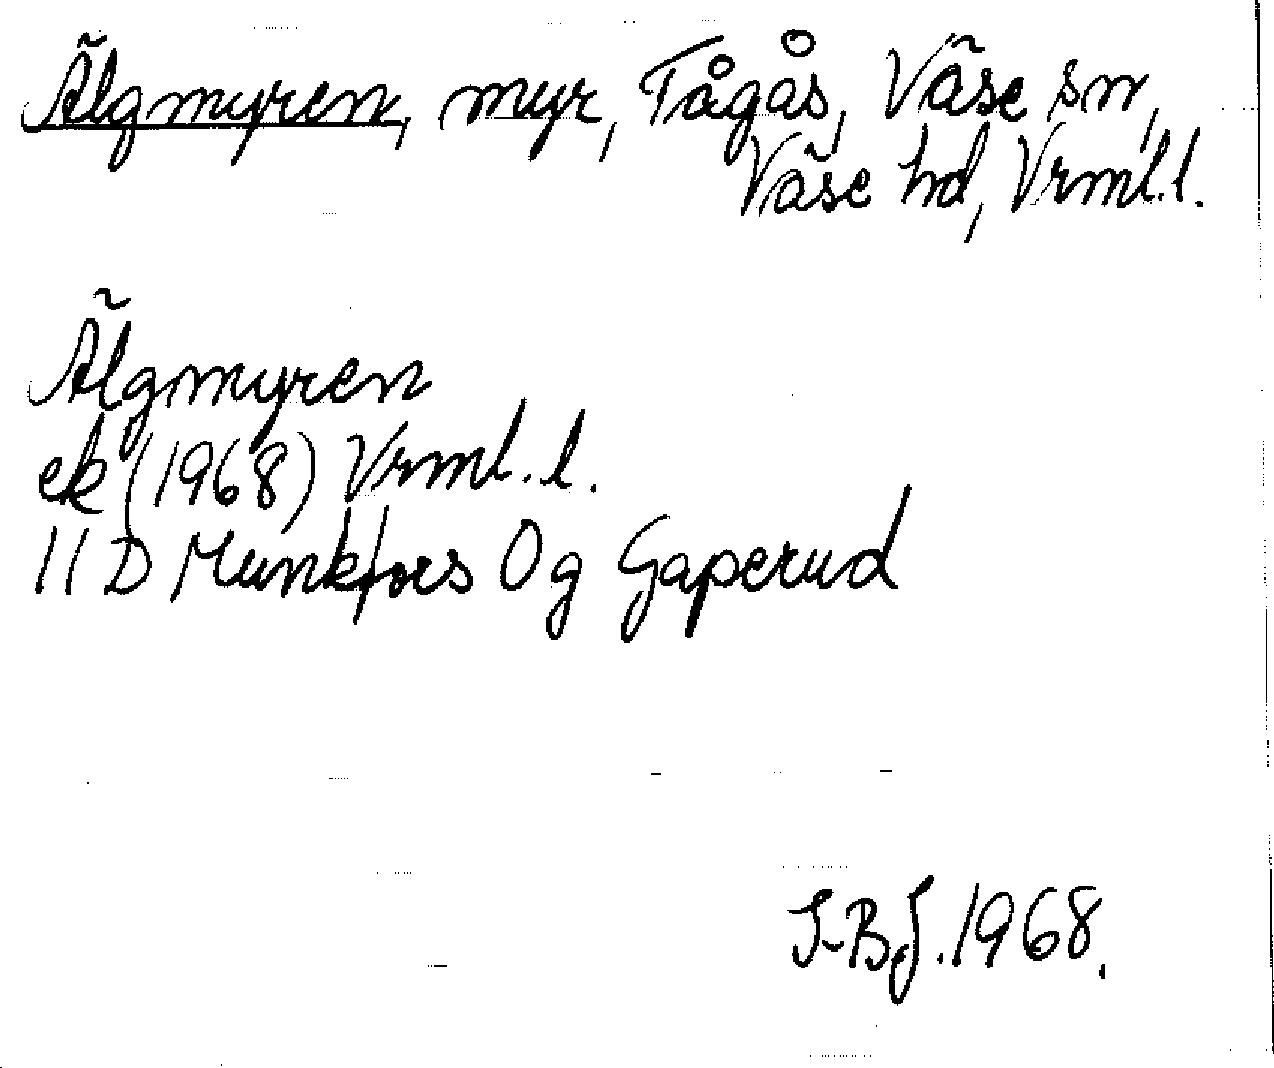 Älgmyren, myr, Tågås, Väse sn,
Väse hd, Vrml.l.
Älgmyren
ek (1968) Vrml.l.
11 D Munkfors 0 g Gaperud
I-BJ. 1968.